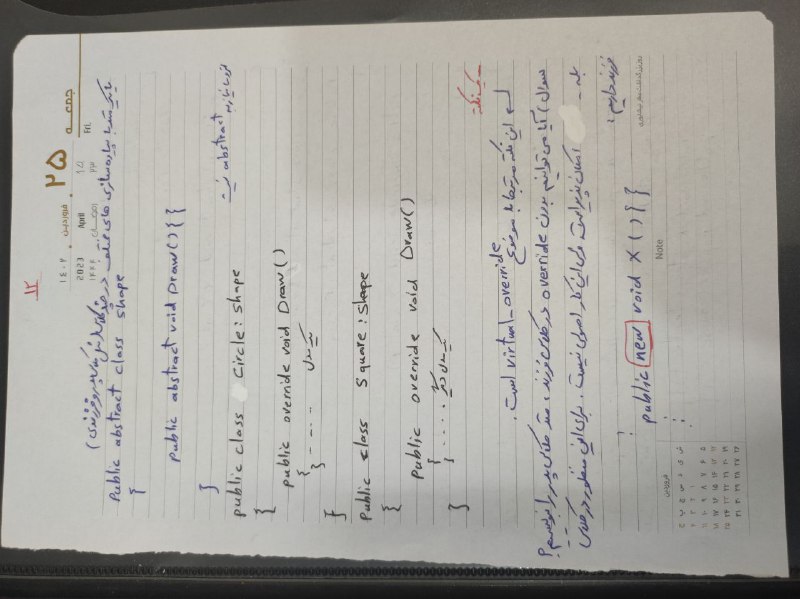 ۱۲
جمعه
۲۵ فروردین ۱۴۰۲
Fri. 14 April 2023
۲۳ ۱۴۴۴
یا یک متد با پیاده سازی های مختلف در چند کلاس (مثل کلاس پدر و فرزندی)
Public abstract class shape
{
public abstract void Draw(){ }
}
لزوما نیاز به abstract نیست
public class Circle: shape
{
public override void Draw()
{ یک مدل ..... }
}
Public class Square: Shape
{
public override void Draw()
{ یک مدل دیگر ..... }
}
- یک نکته
این نکته مرتبط با موضوع virtual-override است.
سوال) آیا می توانیم بدون override در کلاس فرزند، متد کلاس پدر را بنویسیم؟
بله - امکان پذیر است ولی این کار اصولی نیست. برای این منظور در کلاس
فرزند داریم:
public new void X(){ }
روز بزرگداشت عطار نیشابوری
Note
فروردین
ش ی د س چ پ ج
۱ ۲ ۳ ۴
۵ ۶ ۷ ۸ ۹ ۱۰ ۱۱
۱۲ ۱۳ ۱۴ ۱۵ ۱۶ ۱۷ ۱۸
۱۹ ۲۰ ۲۱ ۲۲ ۲۳ ۲۴ ۲۵
۲۶ ۲۷ ۲۸ ۲۹ ۳۰ ۳۱